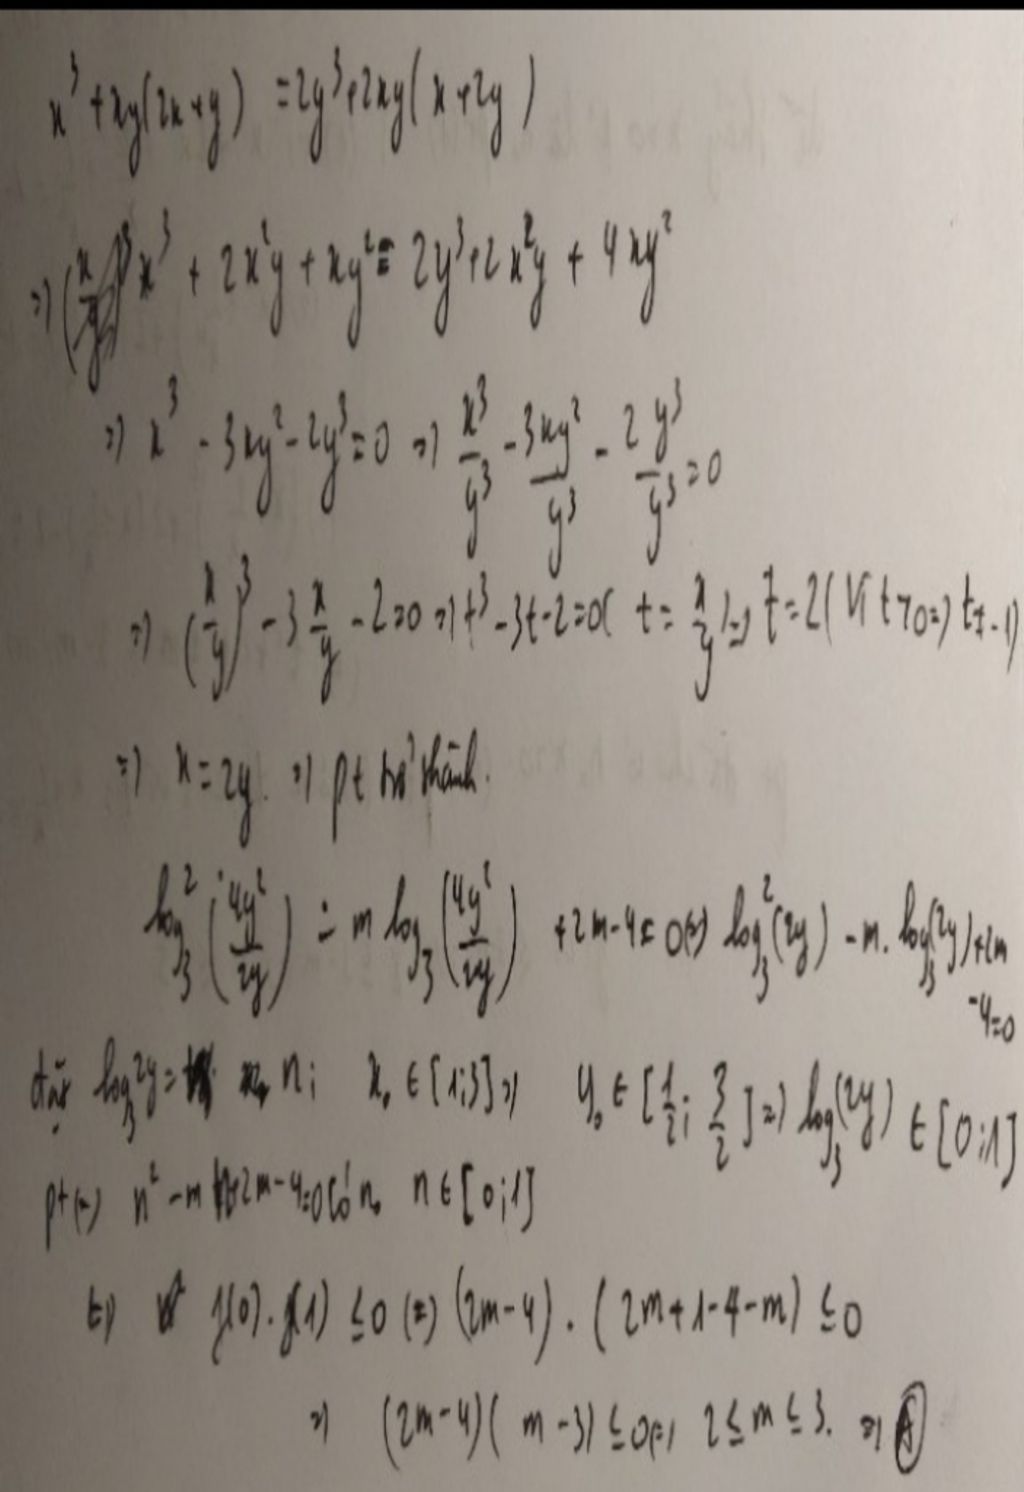 x³ + xy(2x+y) = 2y³ + 2xy(x+2y)
=> x³ + 2x²y + xy² = 2y³ + 2x²y + 4xy²
=> x³ - 3xy² - 2y³ = 0 => x³/y³ - 3xy²/y³ - 2y³/y³ = 0
=> (x/y)³ - 3x/y - 2 = 0 => t³ - 3t - 2 = 0 ( t = x/y ) => t = 2 ( Vì t > 0 => t ≠ -1)
=> x = 2y => pt trở thành.
log₃² (4y²/2y) - m log₃ (4y²/2y) + 2m - 4 = 0 (=) log₃²(2y) - m. log₃(2y) + 2m
-4=0
đặt log₃2y = n; x₀ ∈ [1;3] => y₀ ∈ [1/2; 3/2] => log₃(2y) ∈ [0;1]
pt (=) n² - mn + 2m - 4 = 0 có n₀ n ∈ [0;1]
f(0). f(1) ≤ 0 (=) (2m-4) . ( 2m+1-4-m) ≤ 0
=> (2m-4)( m-3) ≤ 0 (=) 2 ≤ m ≤ 3. => A